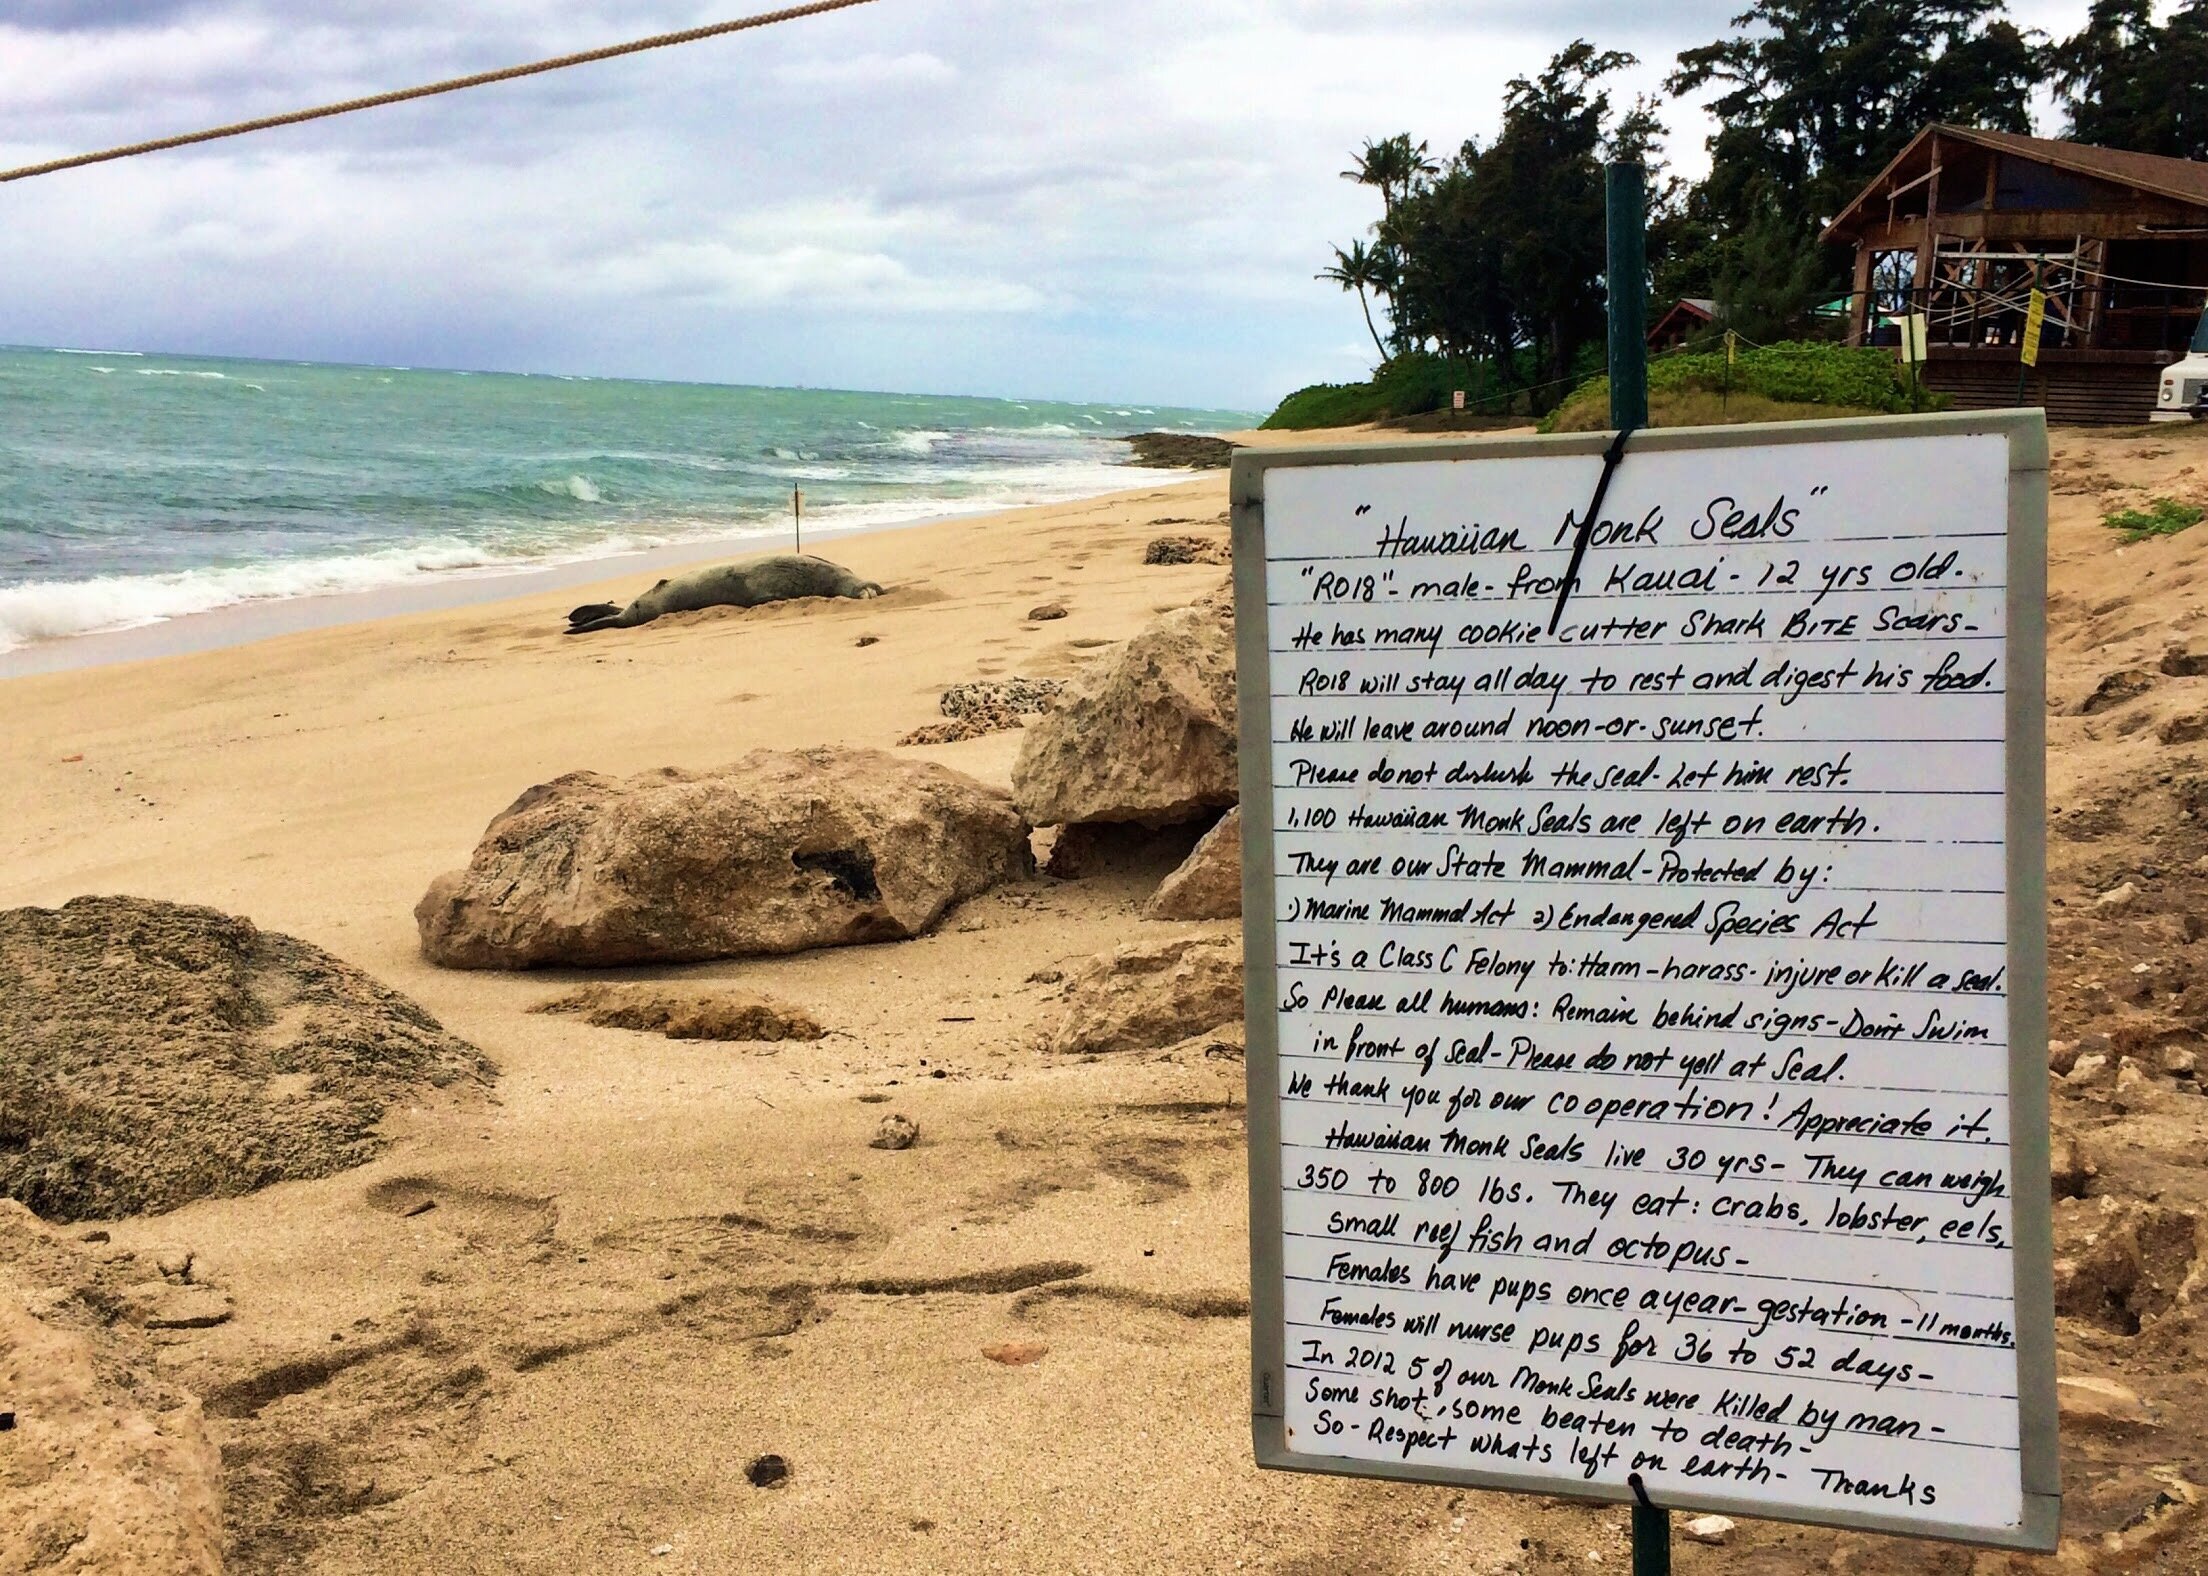 "Hawaiian Monk Seals"
"RO18" - male - from Kauai - 12 yrs old.
He has many cookie cutter Shark BITE Scars -
RO18 will stay all day to rest and digest his food.
He will leave around noon - or - sunset.
Please do not disturb the seal - Let him rest.
1,100 Hawaiian Monk Seals are left on earth.
They are our State Mammal - Protected by:
1) Marine Mammal Act 2) Endangered Species Act
It's a Class C Felony to: Harm - harass - injure or kill a seal.
So Please all humans: Remain behind signs - Don't Swim
in front of seal - Please do not yell at Seal.
We thank you for our cooperation! Appreciate it.
Hawaiian Monk Seals live 30 yrs - They can weigh
350 to 800 lbs. They eat: crabs, lobster, eels,
small reef fish and octopus -
Females have pups once a year - gestation - 11 months.
Females will nurse pups for 36 to 52 days -
In 2012 5 of our Monk Seals were Killed by man -
Some shot, some beaten to death -
So - Respect whats left on earth - Thanks